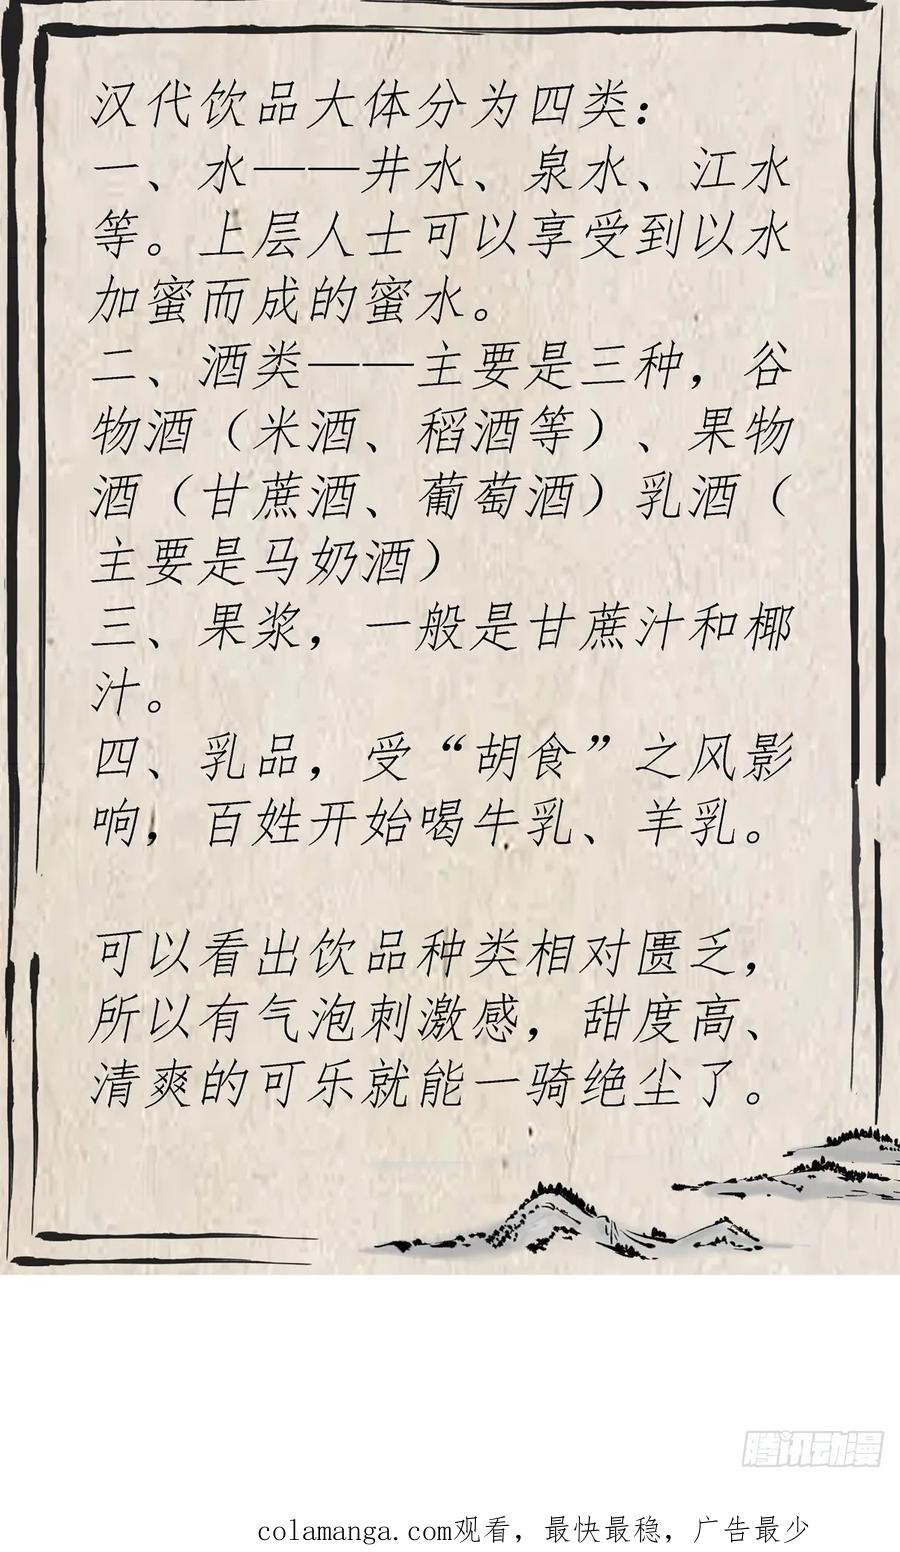 汉代饮品大体分为四类：
一、水——井水、泉水、江水
等。上层人士可以享受到以水
加蜜而成的蜜水。
二、酒类——主要是三种，谷
物酒（米酒、稻酒等）、果物
酒（甘蔗酒、葡萄酒）乳酒（
主要是马奶酒）
三、果浆，一般是甘蔗汁和椰
汁。
四、乳品，受“胡食”之风影
响，百姓开始喝牛乳、羊乳。
可以看出饮品种类相对匮乏，
所以有气泡刺激感，甜度高、
清爽的可乐就能一骑绝尘了。
腾讯动漫
colamanga.com观看，最快最稳，广告最少